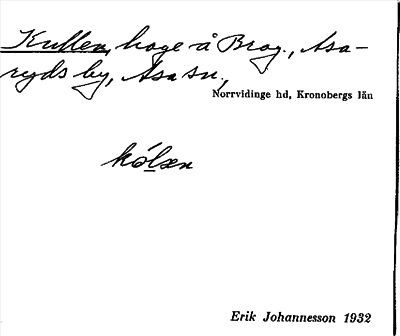 Kullen, hage å Brag., Asa-
ryds by, Asa sn.,
Norrvidinge hd, Kronobergs län
kólæn
Erik Johannesson 1932